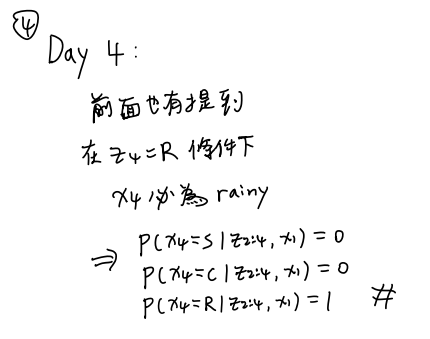 ④
Day 4:
前面也有提到
在 z₄=R 條件下
x₄ 必為 rainy
⇒ P(x₄=S | z₂:₄, x₁) = 0
P(x₄=C | z₂:₄, x₁) = 0
P(x₄=R | z₂:₄, x₁) = 1 #